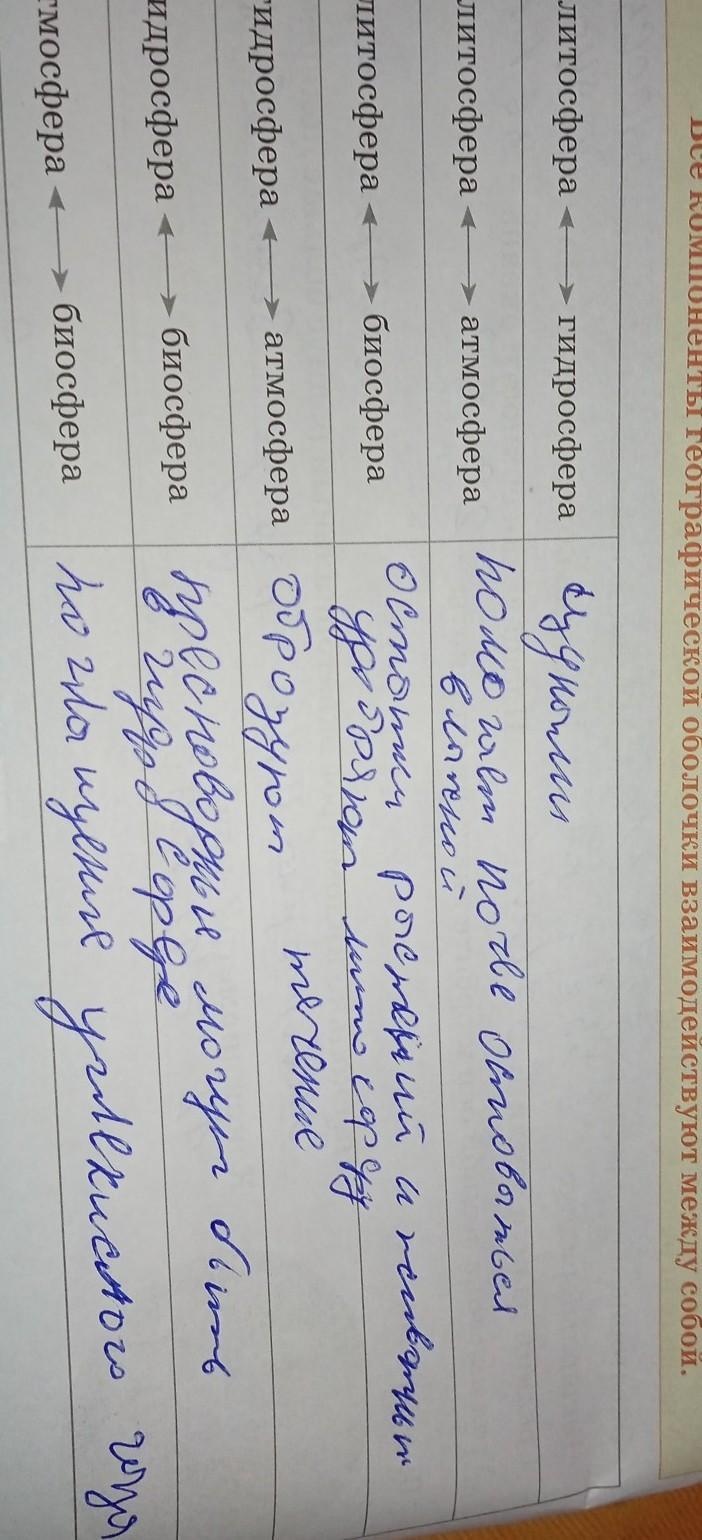 Все компоненты географической оболочки взаимодействуют между собой.
литосфера ⟷ гидросфера цунами
литосфера ⟷ атмосфера помогает почве оставаться
влажной
литосфера ⟷ биосфера остатки растений и животных
удобряют литосферу
гидросфера ⟷ атмосфера образуют течение
идросфера ⟷ биосфера пресноводные могут быть
в гидр сфере
тмосфера ⟷ биосфера поглащение углекислого газа